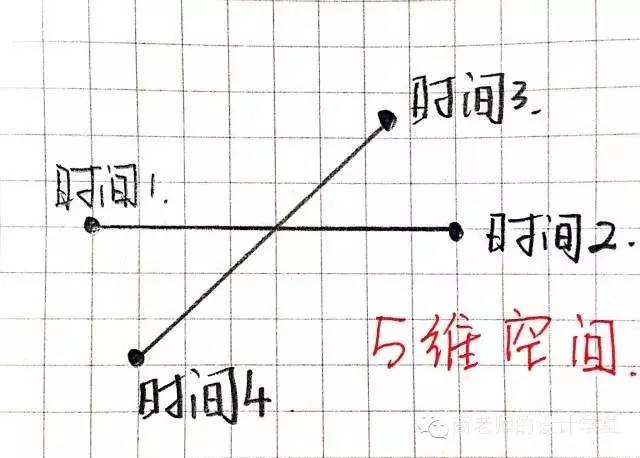 时间3.
时间1.
时间2.
5维空间.
时间4.
老师的设计学堂